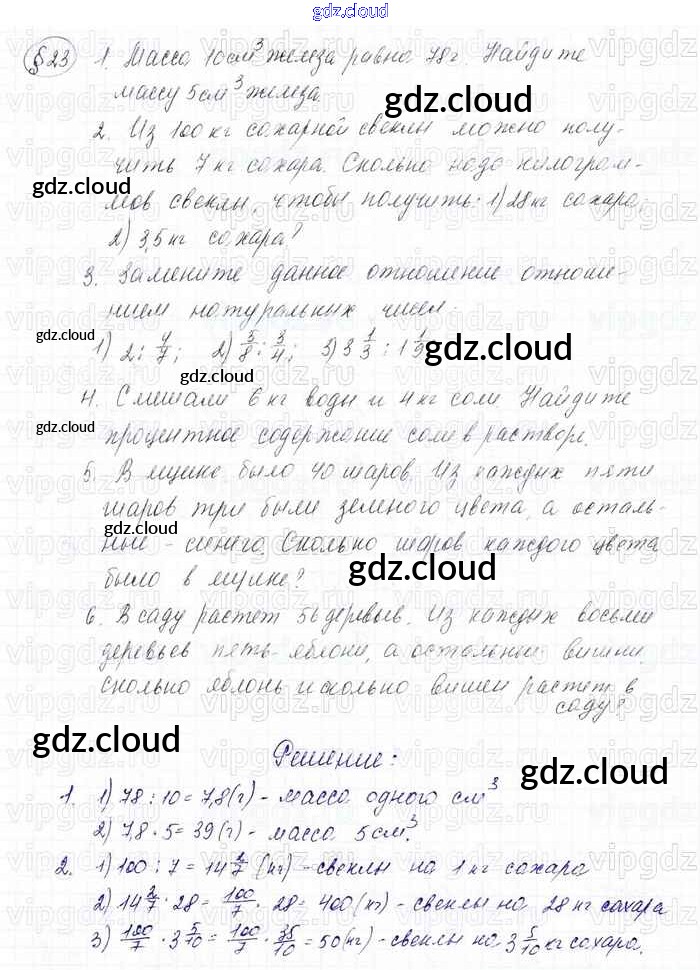 gdz.cloud
§23 1. Масса 10см³ железа равна 78г. Найдите
массу 5см³ железа.
gdz.cloud
2. Из 100 кг сахарной свеклы можно полу-
чить 7 кг сахара. Сколько надо килограм-
gdz.cloud
мов свеклы, чтобы получить: 1) 28 кг сахара,
2) 3,5 кг сахара?
3. Замените данное отношение отноше-
нием натуральных чисел:
gdz.cloud
1) 2 : 4/7; 2) 3/8 : 3/4; 3) 3 1/3 : 1 1/9
gdz.cloud
gdz.cloud
4. Смешали 6 кг воды и 4 кг соли. Найдите
gdz.cloud
процентное содержание соли в растворе.
5. В ящике было 40 шаров. Из каждых пяти
шаров три были зеленого цвета, а осталь-
gdz.cloud
ные - синего. Сколько шаров каждого цвета
было в ящике?
gdz.cloud
6. В саду растет 56 деревьев. Из каждых восьми
деревьев пять - яблони, а остальные вишни.
Сколько яблонь и сколько вишен растет в
саду?
gdz.cloud
Решение:
gdz.cloud
1. 1) 78 : 10 = 7,8 (г) - масса одного см³
2) 7,8 · 5 = 39 (г) - масса 5 см³.
2. 1) 100 : 7 = 14 2/7 (кг) - свеклы на 1 кг сахара
2) 14 2/7 · 28 = 100/7 · 28 = 400 (кг) - свеклы на 28 кг сахара
3) 100/7 · 3 5/10 = 100/7 · 35/10 = 50 (кг) - свеклы на 3 5/10 кг сахара.